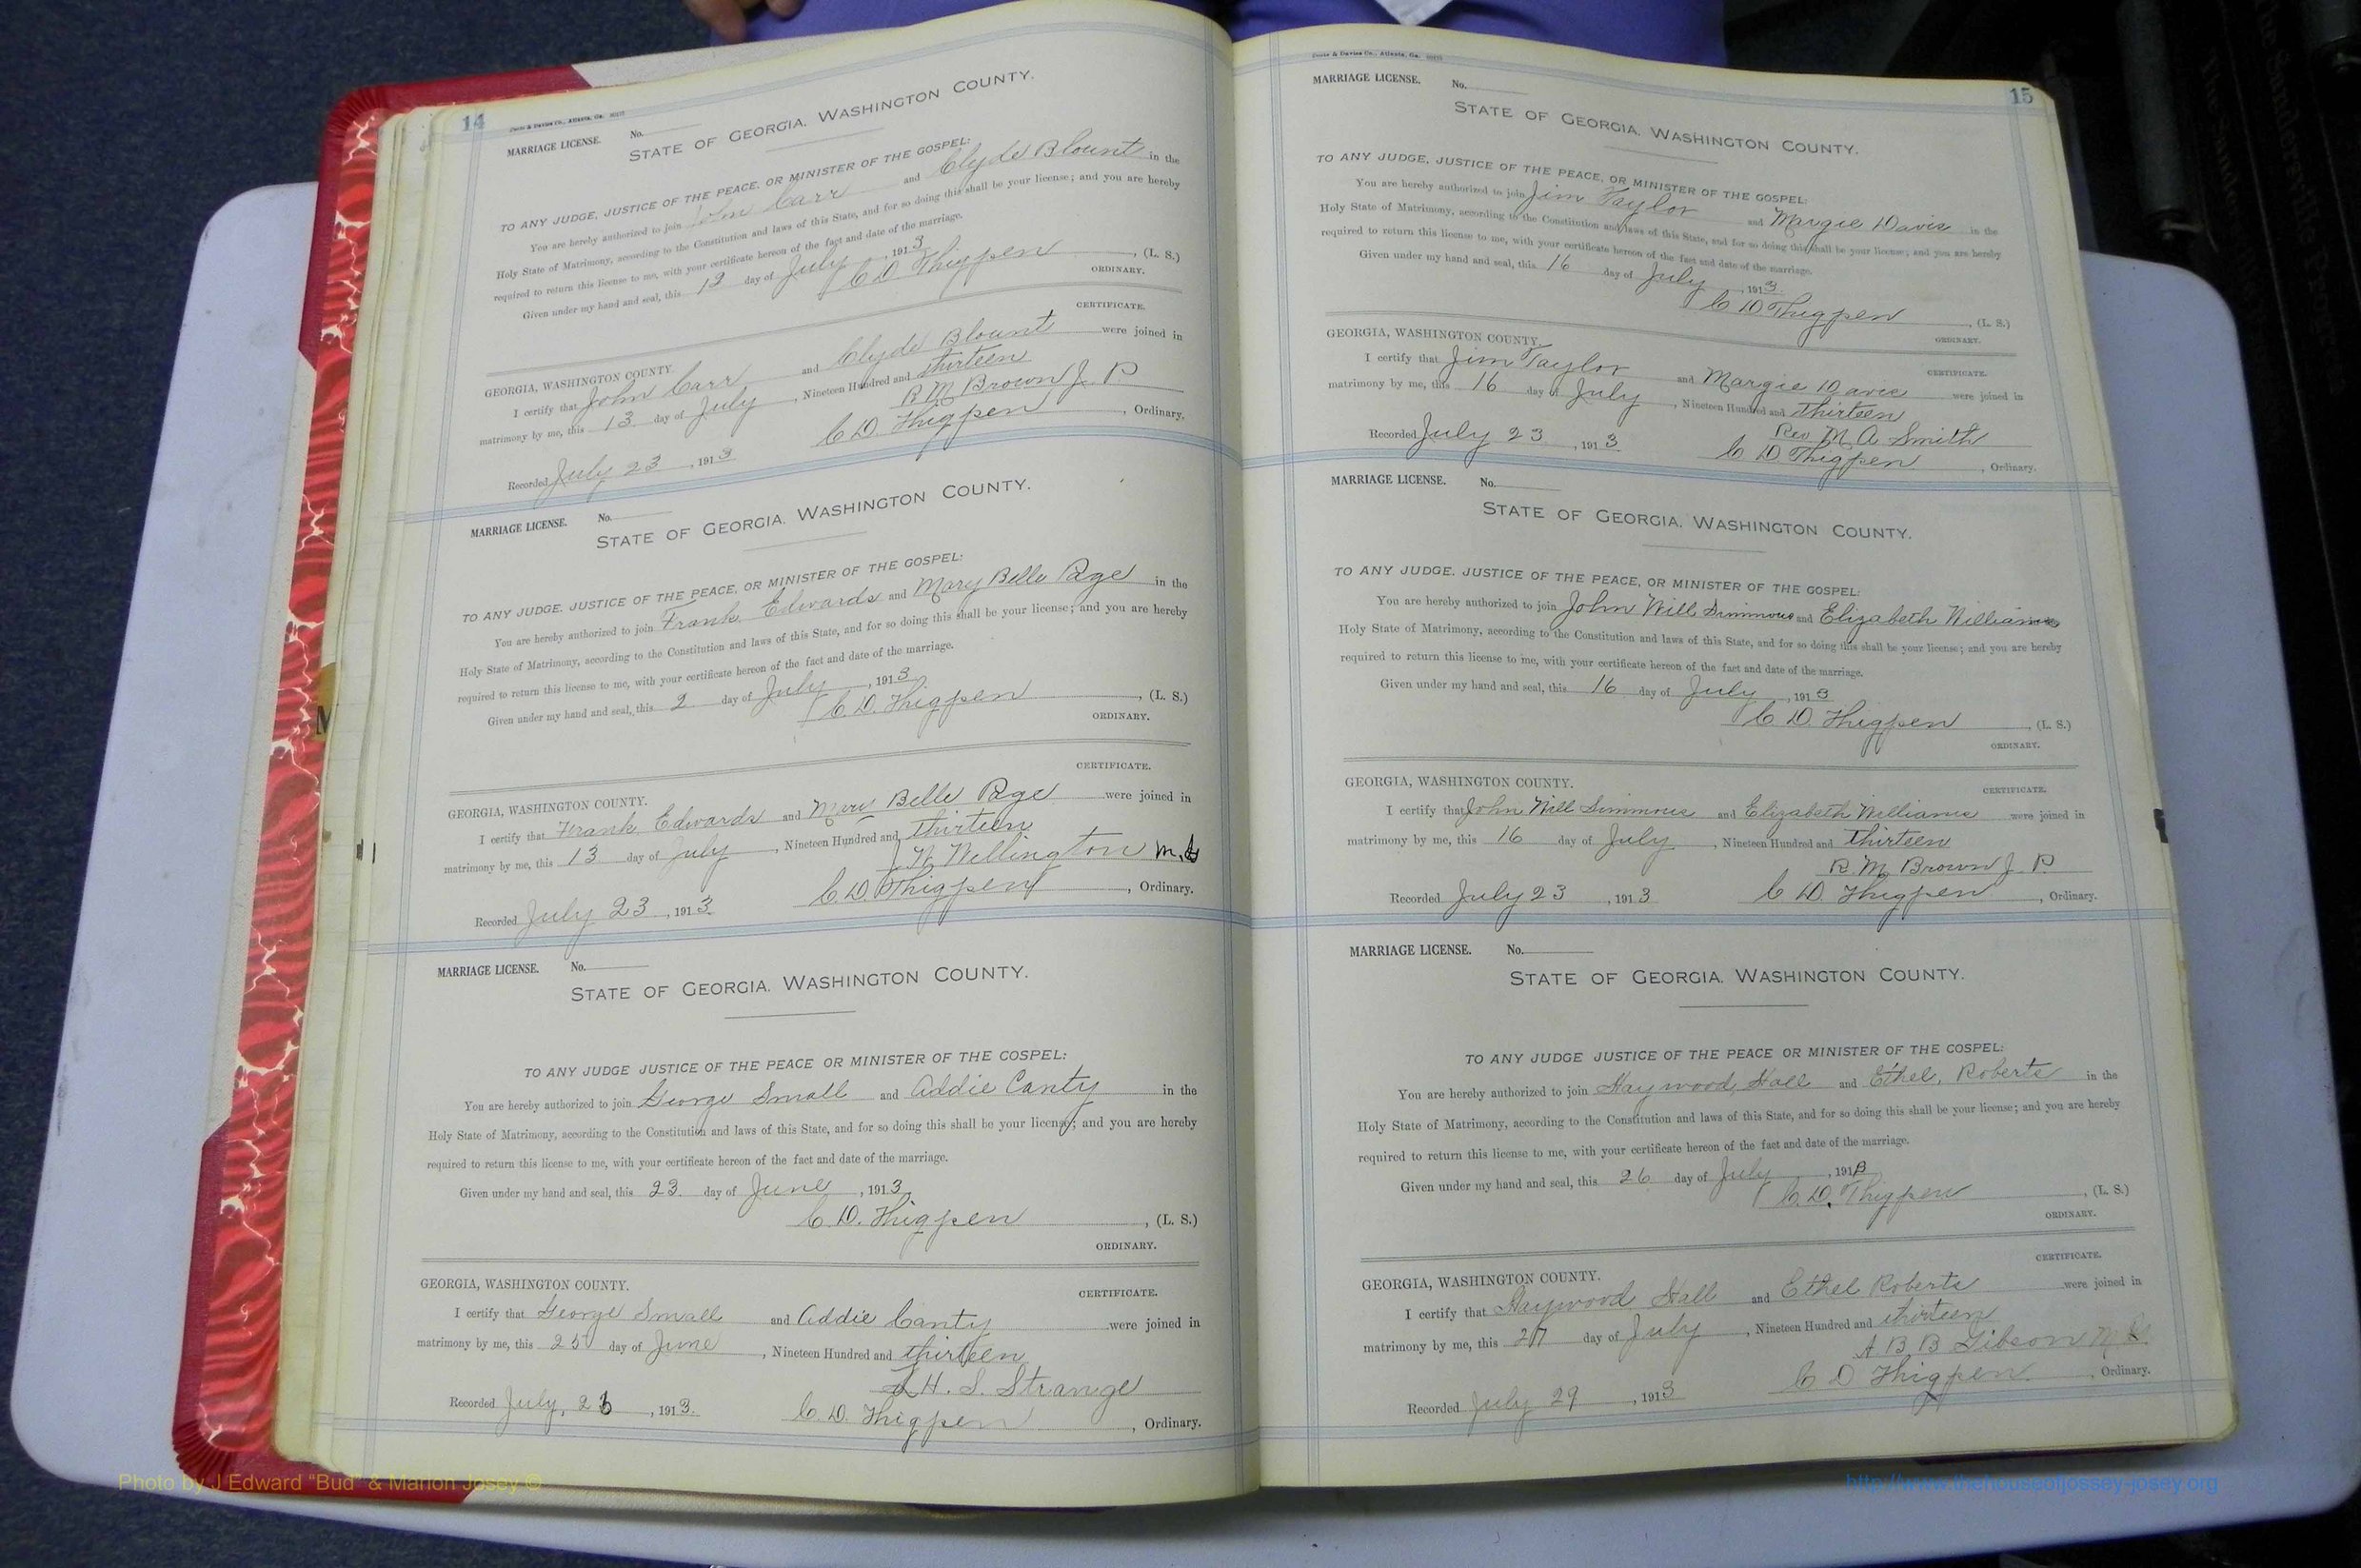 14
MARRIAGE LICENSE. No.
STATE OF GEORGIA, WASHINGTON COUNTY.
TO ANY JUDGE, JUSTICE OF THE PEACE, OR MINISTER OF THE GOSPEL:
You are hereby authorized to join John Carr and Clyde Blount in the
Holy State of Matrimony, according to the Constitution and laws of this State, and for so doing this shall be your license; and you are hereby
required to return this license to me, with your certificate hereon of the fact and date of the marriage.
Given under my hand and seal, this 12 day of July, 1913
C. D. Thigpen, (L. S.)
ORDINARY.
CERTIFICATE.
GEORGIA, WASHINGTON COUNTY.
I certify that John Carr and Clyde Blount were joined in
matrimony by me, this 13 day of July, Nineteen Hundred and thirteen
R. M. Brown J. P.
Recorded July 23, 1913 C. D. Thigpen, Ordinary.
MARRIAGE LICENSE. No.
STATE OF GEORGIA, WASHINGTON COUNTY.
TO ANY JUDGE, JUSTICE OF THE PEACE, OR MINISTER OF THE GOSPEL:
You are hereby authorized to join Frank Edwards and Mary Belle Page in the
Holy State of Matrimony, according to the Constitution and laws of this State, and for so doing this shall be your license; and you are hereby
required to return this license to me, with your certificate hereon of the fact and date of the marriage.
Given under my hand and seal, this 2 day of July, 1913
C. D. Thigpen, (L. S.)
ORDINARY.
CERTIFICATE.
GEORGIA, WASHINGTON COUNTY.
I certify that Frank Edwards and Mary Belle Page were joined in
matrimony by me, this 13 day of July, Nineteen Hundred and thirteen
Wellington M. G.
Recorded July 23, 1913 C. D. Thigpen, Ordinary.
MARRIAGE LICENSE. No.
STATE OF GEORGIA, WASHINGTON COUNTY.
TO ANY JUDGE JUSTICE OF THE PEACE OR MINISTER OF THE GOSPEL:
You are hereby authorized to join George Small and Addie Canty in the
Holy State of Matrimony, according to the Constitution and laws of this State, and for so doing this shall be your license; and you are hereby
required to return this license to me, with your certificate hereon of the fact and date of the marriage.
Given under my hand and seal, this 23 day of June, 1913
C. D. Thigpen, (L. S.)
ORDINARY.
GEORGIA, WASHINGTON COUNTY.
CERTIFICATE.
I certify that George Small and Addie Canty were joined in
matrimony by me, this 25 day of June, Nineteen Hundred and thirteen
H. S. Strange
Recorded July, 1913. C. D. Thigpen, Ordinary.
15
MARRIAGE LICENSE. No.
STATE OF GEORGIA, WASHINGTON COUNTY.
TO ANY JUDGE, JUSTICE OF THE PEACE, OR MINISTER OF THE GOSPEL:
You are hereby authorized to join Jim Taylor and Margie Davis in the
Holy State of Matrimony, according to the Constitution and laws of this State, and for so doing this shall be your license; and you are hereby
required to return this license to me, with your certificate hereon of the fact and date of the marriage.
Given under my hand and seal, this 16 day of July, 1913
C D Thigpen, (L. S.)
ORDINARY.
GEORGIA, WASHINGTON COUNTY.
CERTIFICATE.
I certify that Jim Taylor and Margie Davis were joined in
matrimony by me, this 16 day of July, Nineteen Hundred and thirteen
Rev M. A. Smith
Recorded July 23, 1913 C D Thigpen, Ordinary.
MARRIAGE LICENSE. No.
STATE OF GEORGIA, WASHINGTON COUNTY.
TO ANY JUDGE, JUSTICE OF THE PEACE, OR MINISTER OF THE GOSPEL:
You are hereby authorized to join John Will Simmons and Elizabeth Williams
Holy State of Matrimony, according to the Constitution and laws of this State, and for so doing this shall be your license; and you are hereby
required to return this license to me, with your certificate hereon of the fact and date of the marriage.
Given under my hand and seal, this 16 day of July, 1913
C D. Thigpen, (L. S.)
ORDINARY.
GEORGIA, WASHINGTON COUNTY.
CERTIFICATE.
I certify that John Will Simmons and Elizabeth Williams were joined in
matrimony by me, this 16 day of July, Nineteen Hundred and thirteen
R. M. Brown J. P.
Recorded July 23, 1913 C D. Thigpen, Ordinary.
MARRIAGE LICENSE. No.
STATE OF GEORGIA, WASHINGTON COUNTY.
TO ANY JUDGE JUSTICE OF THE PEACE OR MINISTER OF THE GOSPEL:
You are hereby authorized to join Haywood Hall and Ethel Roberts in the
Holy State of Matrimony, according to the Constitution and laws of this State, and for so doing this shall be your license; and you are hereby
required to return this license to me, with your certificate hereon of the fact and date of the marriage.
Given under my hand and seal, this 26 day of July, 1913
C. D. Thigpen, (L. S.)
ORDINARY.
CERTIFICATE.
GEORGIA, WASHINGTON COUNTY.
I certify that Haywood Hall and Ethel Roberts were joined in
matrimony by me, this 27 day of July, Nineteen Hundred and thirteen
A. B. B Gibson M. G.
Recorded July 29, 1913 C D Thigpen, Ordinary.
Photo by J Edward "Bud" & Marion Josey ©
http://www.thehouseofjossey-josey.org